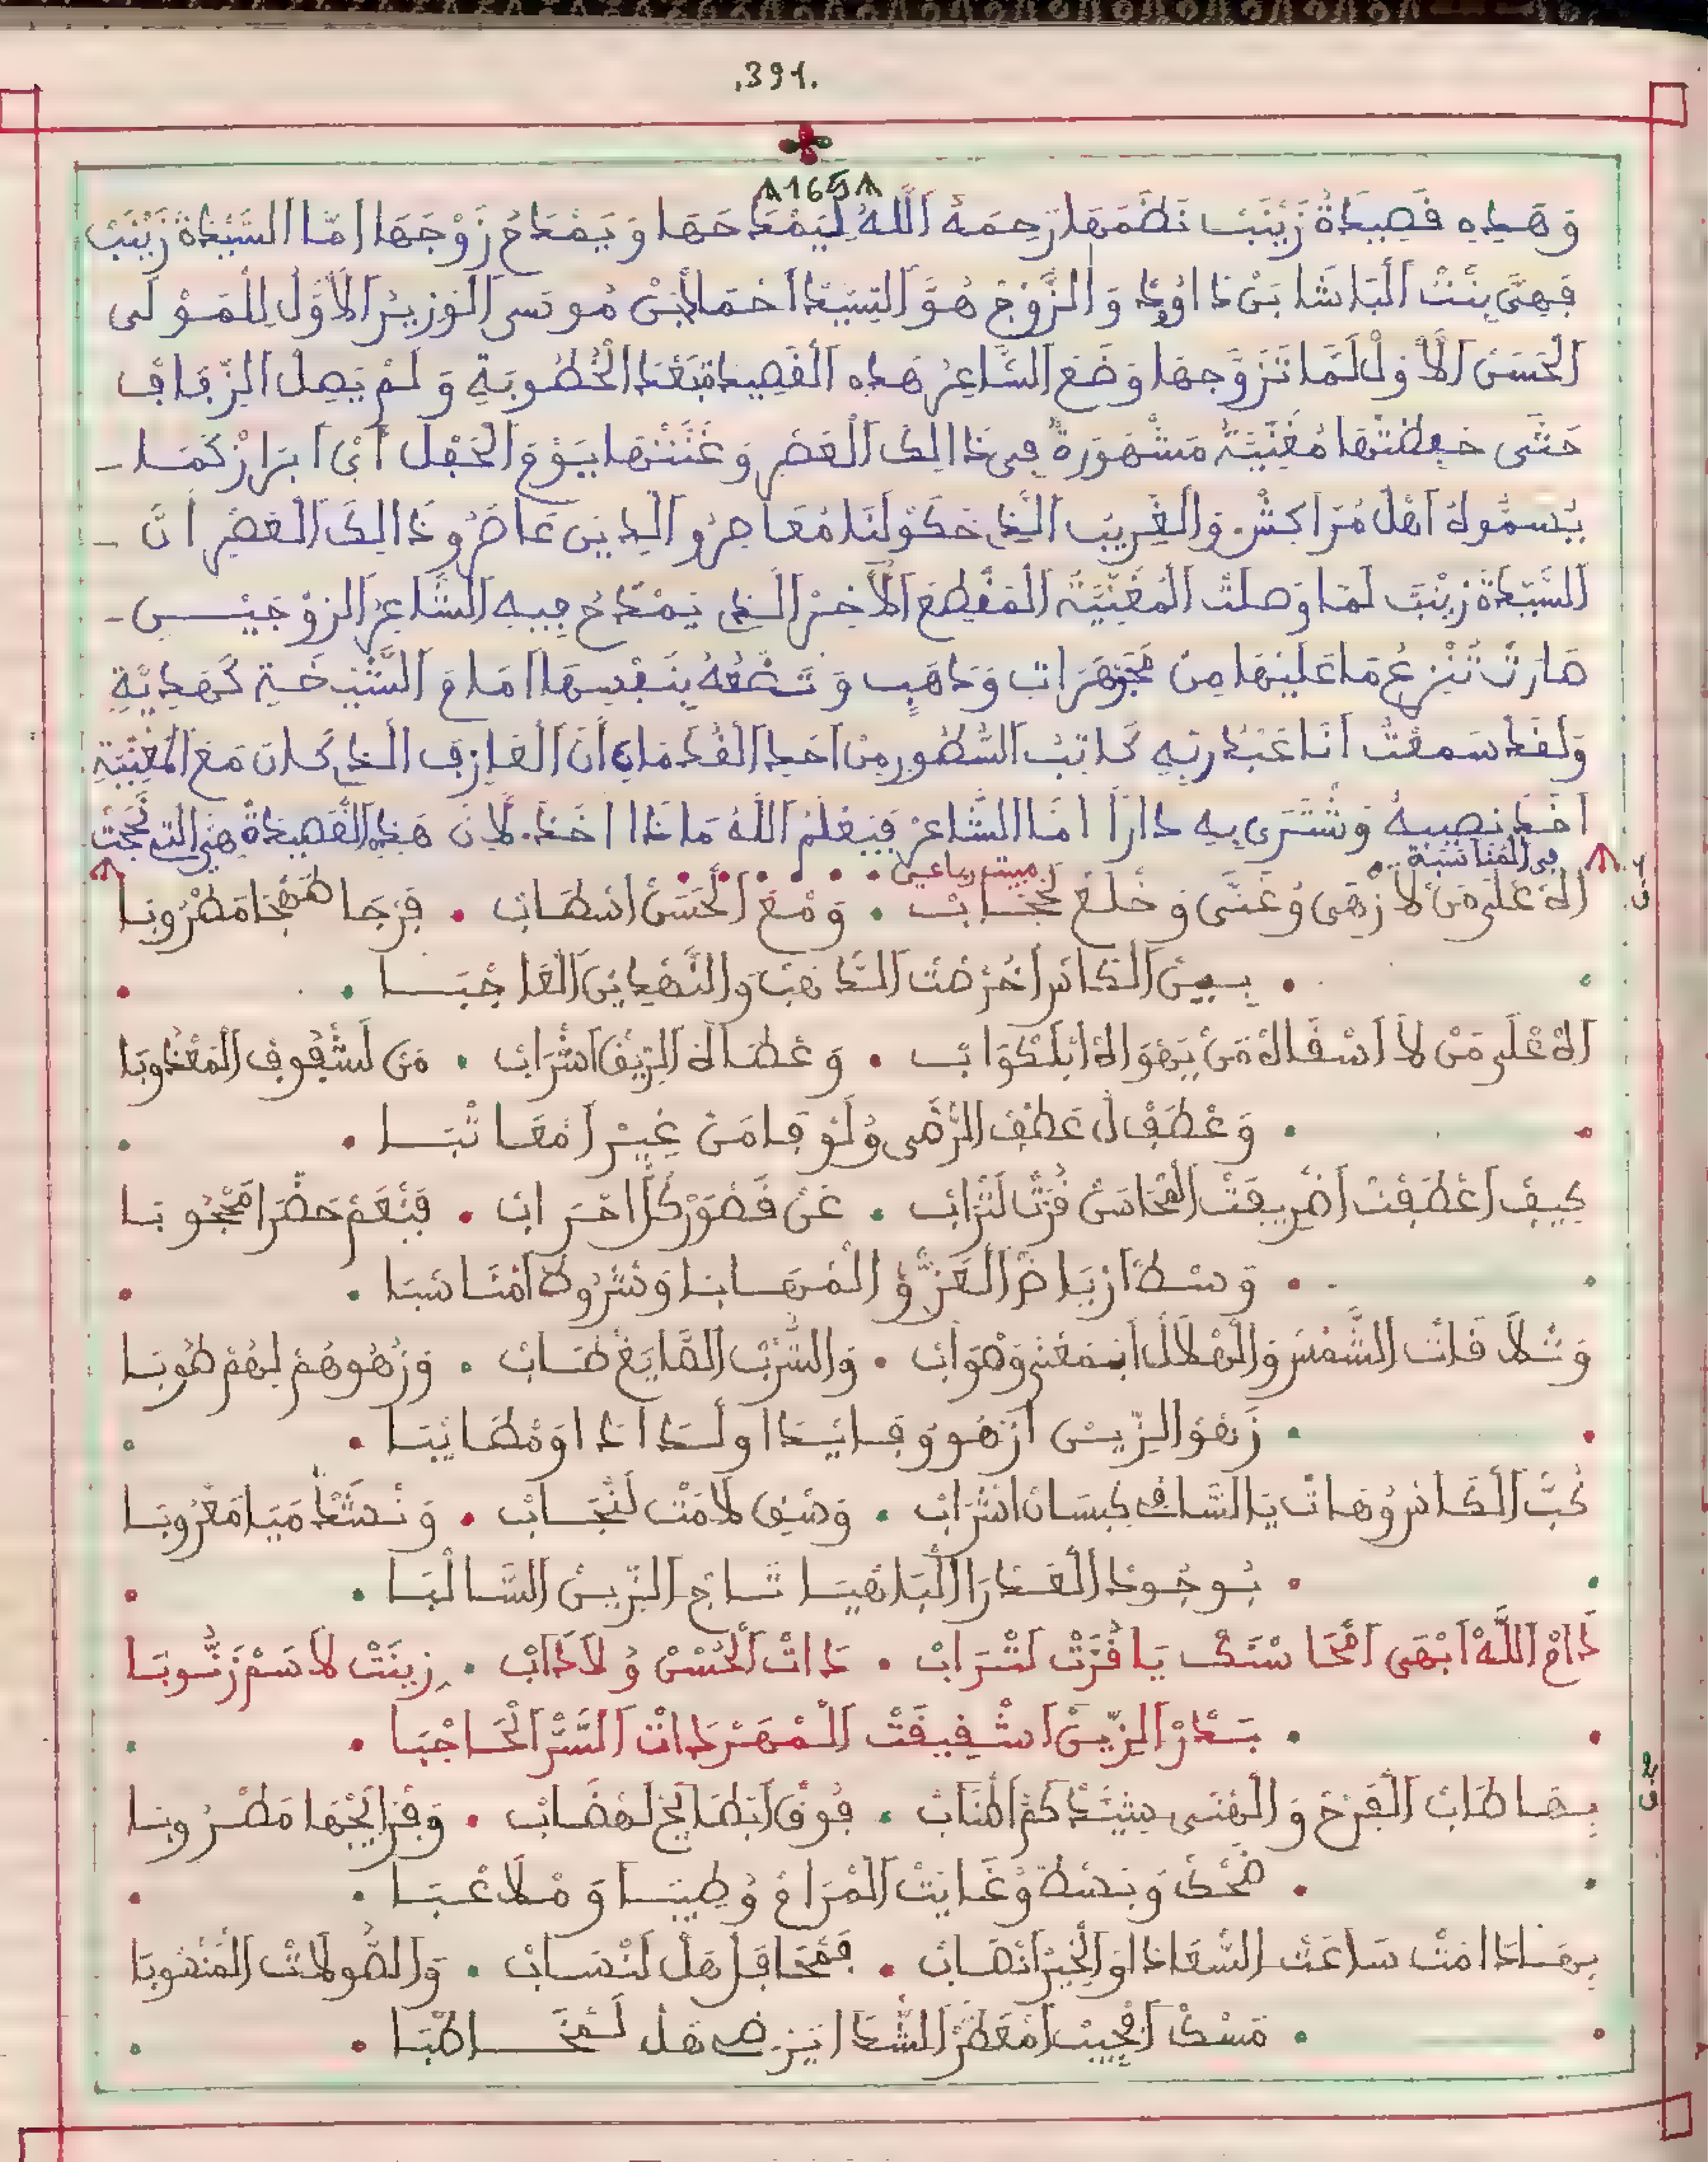 .391.
165
وَهَدِهِ قَصِيدَةُ زَيْنَبْ نَظَمَهَا رَحِمَهُ اللَّهُ لِيَمْدَحَهَا وَيَمْدَحُ زَوْجَهَا امَّا السَّيْدَةُ زَيْنَبْ
فَهِيَ بِنْتُ الْبَاشَا بَنْ دَاوُدْ وَالزَّوْجْ هُوَّ السِّيدْ احْمَدْ بْنْ مُوسَى الْوَزِيرْ الْأَوَّلْ لِلْمَوْلَى
الْحَسَنْ الْأَوَلْ لَمَّا تَزَوَّجهَا وَضَعَ الشَّاعِرْ هَدِهِ الْقَصِيدة بَعْدَ الْخُطُوبَةِ وَلَمْ يَصِلْ الزِّفَافْ
حَتَّى حَفِظَتْهَا مُغَنِّيَةْ مَشْهُورَةْ فِي ذَالِكَ الْعَصْرِ وَغَنَّتْهَا يَوْمَ الْحَفْلْ أَيْ ابْرَازْ كَمَا
يُسَمُّوهْ اهْلْ مُرَاكِشْ. وَالْغَرِيبْ الَّذِي حَكَوْ لَنَا مُعَاصِرُو الَّذِينَ عَاصَرُو ذَالِكَ الْعَصْرِ انَّ
السَّيّدَةْ زَيْنَبَ لَمَا وَصلَتْ الْمُغَنِّيَةْ الْمَقْطِعَ الْأَخِرْ الَّذِي يَمْدَحُ فِيهِ الشَّاعِرْ الزوْجَيْنِ
صَارَتْ تَنْزِعُ مَا عَلَيْهَا مِنْ مُجَوْهَرَات وَدَهَبٍ وَتَضَعُهُ بِنَفْسِهَا امَامَ الشَّيْخَةِ كَهَدِيْةِ
وَلَقَدْ سَمعْتُ أنَا عَبْدُ رَبِهِ كَاتِبْ السُّطُورِ مِنْ احَدِ الْقُدَمَاءِ أنَ الْعَازِفَ الَّذِي كَانَ مَعَ الْمُغَنِّيَةِ
اخَذَ نصِيبهُ وَشْتَرَى بِهِ دَاراً امَّا الشَّاعِرْ فَيَعْلَمُ اللَّهُ مَاذَا اخَذَ. لِأَنَ هَذِهِ الْقَصِيدَةْ هِيَ التِي نَجَحَتْ
فِي الْمُنَاسَبَةِ
مبيت رباعي
الَاهْ عْلَى مَنْ لَا زْهَى وُغَنَّى وَخْلَعْ لَحْجَابْ . وَمْعَ الْحَسَنْ اسْطَابْ . فَرْجَا هَمْجَا مَطْرُوبَا
. بِينْ الْكَاسْ اخْرَصْتْ الدَّهَبْ وَالنَّهْدِينْ الْعَاجْبَا .
الَاهْ عْلَى مَنْ لَا اسْقَاهْ مَنْ يَهْوَاهْ ابْلَكْوَابْ . وَعْطَاهْ الرِّيقْ اشْرَابْ . مَن لَشْفُوفْ الْمَعْدُوبَا
. وَعْطَفْ لْ عَطْفْ الرّْضَى وُلَوْفَا مَنْ غِيرْ امْعَاتْبَا .
كِيفْ اعْطَفْتْ اضْرِيفَتْ الْمْحَاسَنْ فُرْتْ لَتْرَابْ . عَنْ قَصْوَرْ كُلْ احْرَابْ . فَنْعَمْ حَضْرَا مَحْجُوبَا
. وَسْطْ ارْيَاضْ الْعَزّْ وُ الْمْهَابَا وَشْرُوطْ امْنَاسْبَا .
وَتْلَاقَاتْ الشَّمْسْ وَالْهْلَالْ ابْمَعْنَى وَهْوَابْ . وَالشّْرْبْ الصَّايَغْ طَابْ . وَزْهُوهُمْ لِهُمْ طُوبَا
. زَهْوْ الزِّينْ ازْهُو وُفَايْدَا ولْدَادَا وَمْطَايْبَا .
كُبّْ الْكَاسْ وُهَاتْ يَا السَّاقِي كِيسَانْ اشْرَابْ . وَسْقِي لَامَتْ لَنْجَابْ . وَنْسَقْطْ مَيَا مَعْرُوبَا
. بُوجُودْ الْعَدْرَا الْبَاهْيَا تَاجْ الزِّينْ السَّالْبَا .
دَامْ اللَّهْ ابْهَى امْحَاسْنَكْ يَا قُرَّتْ لَتْرَابْ . دَاتْ الْحُسْنْ وُلَادَابْ . زِينَبْ لَاسَمْ زَنُّوبَا
. بَدْرْ الزِّينْ اشْقِيقَتْ الْمْهَرْ دَاتْ السَّرّْ الْحَاجْبَا .
بِهَا طَابْ الْفَرْحْ وَالْهْنَى سِيدْكُمْ الْمْنَابْ . فُوقْ ابْطَايَحْ لَهْضَابْ . وَفْرَايَحْهَا مَطْرُوبَا
. ضَحْكْ وَبَسْطْ وْغَايْتْ الْمْرَامْ وُطِيبَا وَمْلَاعْبَا .
بِهَا دَامَتْ سَاعَتْ السّْعَادَا وَالْخِيرْ انْهَابْ . فَمْحَافَلْ هَلْ لَنْسَابْ . وَالصُّولَاتْ الْمَنْهُوبَا
. مَسْكْ افْجِيبْ امْعَطَّرْ الشّْدَا يَرْضِي هَلْ لَمْخَاطْبَا .